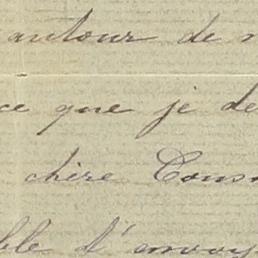 autour de
ce que je de
chère Cous
ble d'envoy